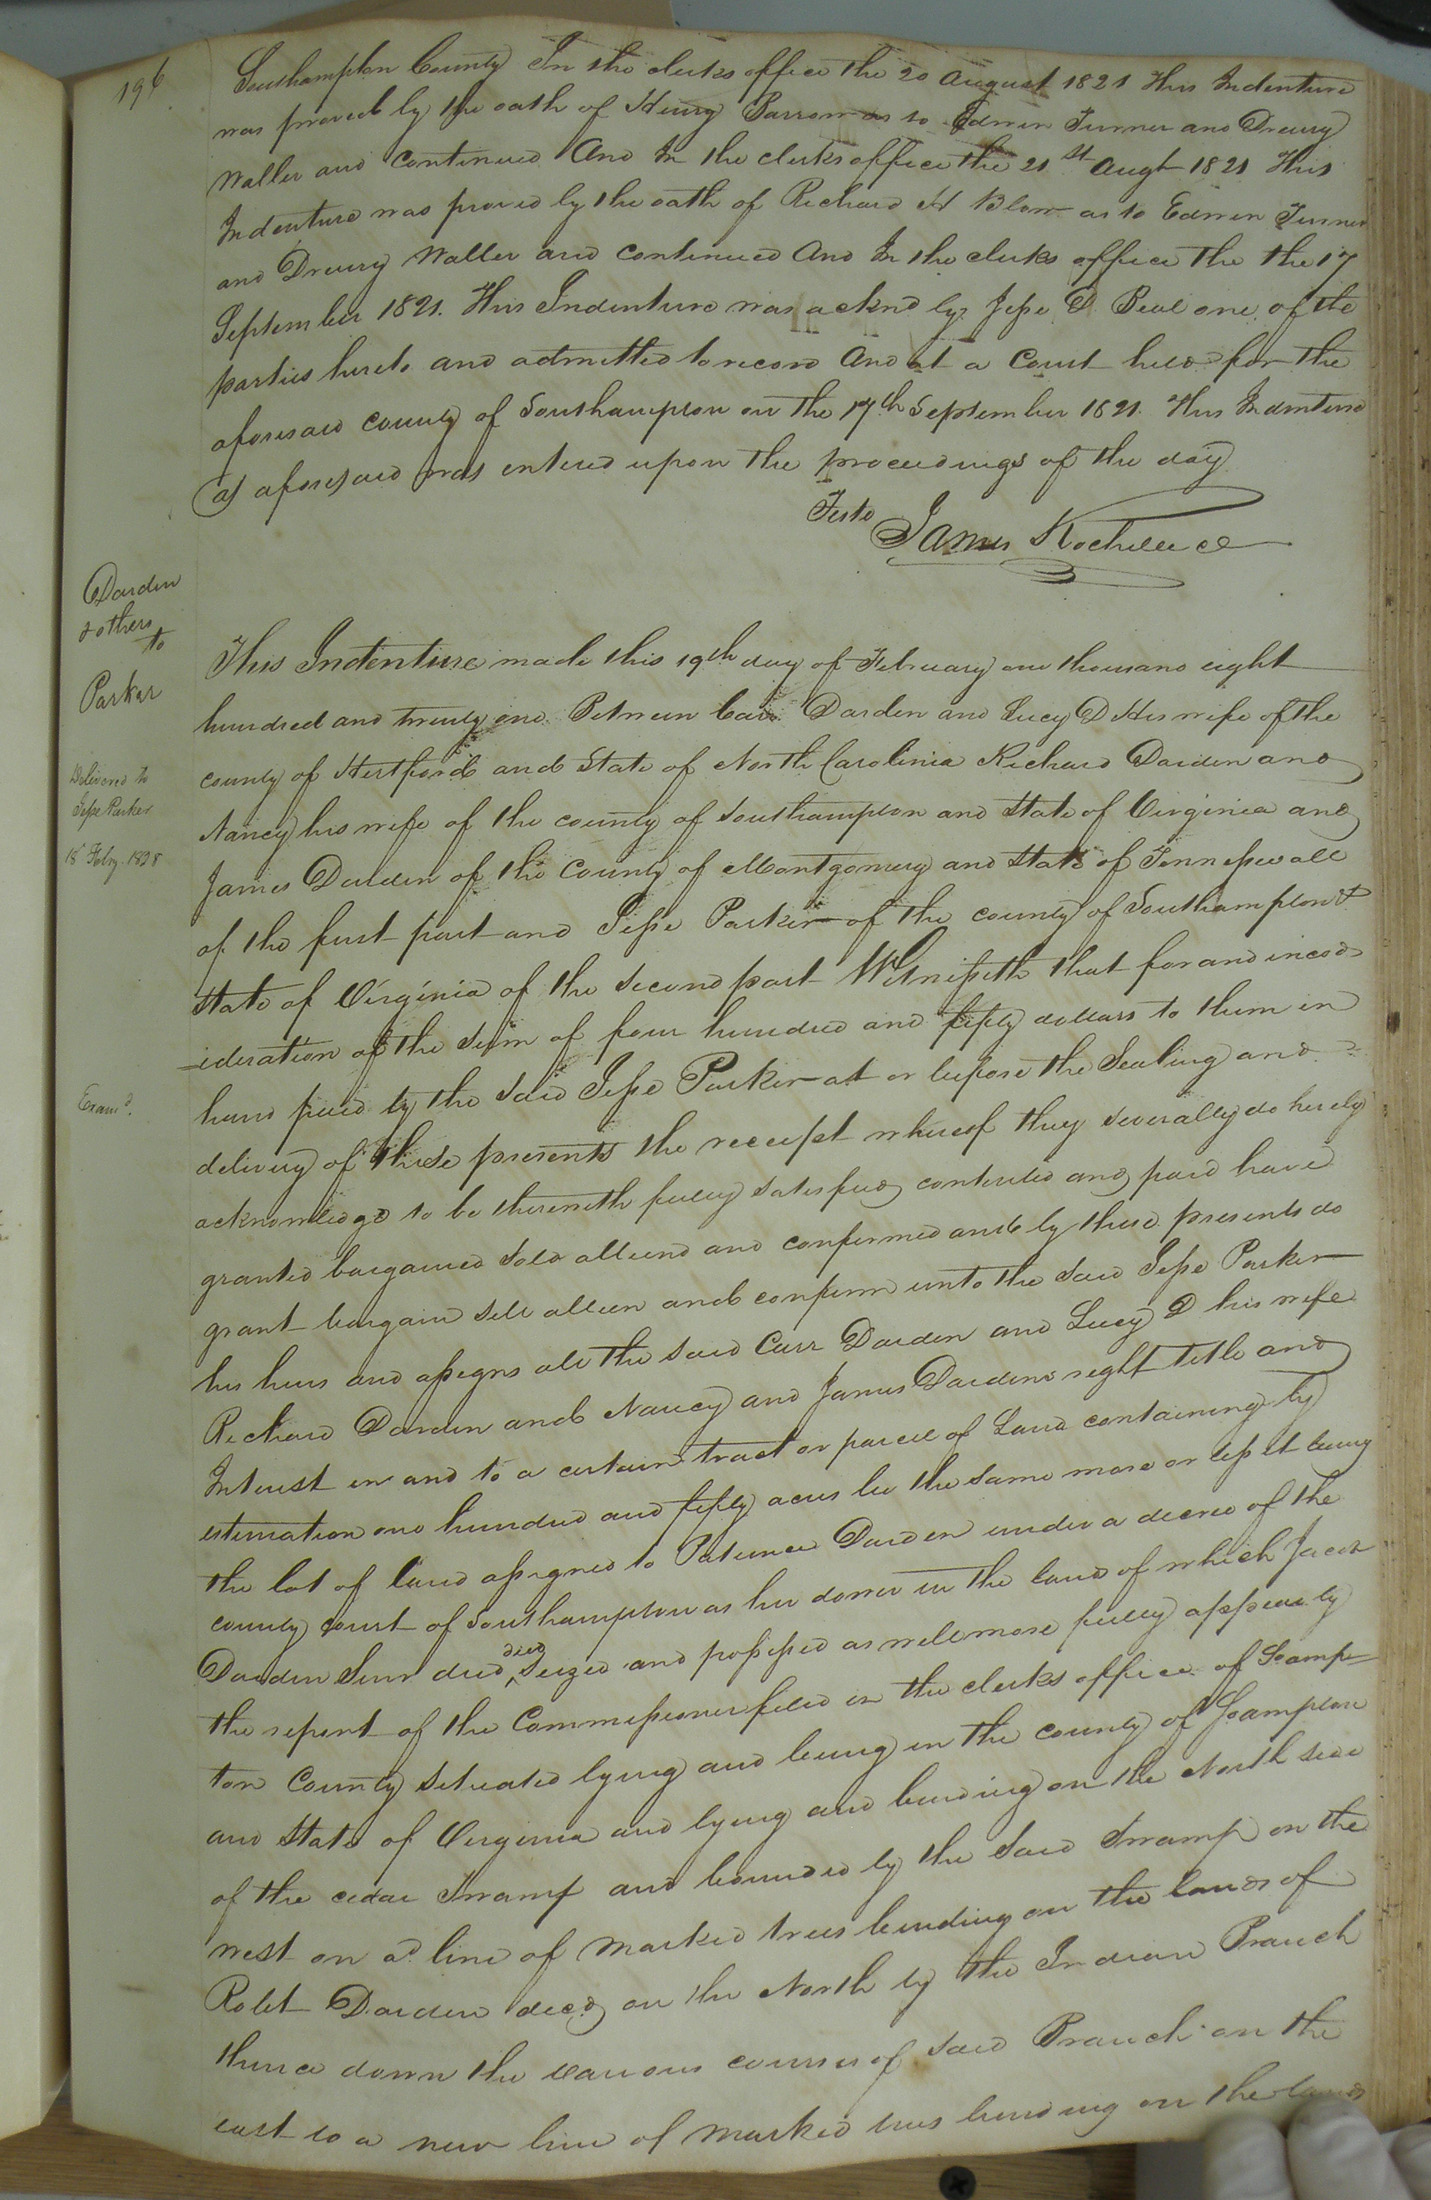 196
Southampton County In the clerks office the 20 August 1821 This Indenture
was proved by the oath of Henry Barrow as to Edwin Turner and Drewry
Waller and continued And In the clerks office the 21st Augt 1821 This
Indenture was proved by the oath of Richard H Blow as to Edwin Turner
and Drewry Waller and continued And In the clerks office the the 17
September 1821. This Indenture was acknd by Jesse D Beal one of the
parties hereto and admitted to record And at a Court held for the
aforesaid county of Southampton on the 17th September 1821. This Indenture
as aforesaid was entered upon the proceedings of the day
Teste
James Rochelle cl
Darden
& others
to
Parker
Delivered to
Jesse Parker
18 Feby. 1838
Examd.
This Indenture made this 19th day of February one thousand eight
hundred and twenty one Between Carr Darden and Lucy D His wife of the
county of Hertford and State of North Carolinia Richard Darden and
Nancy his wife of the county of Southampton and State of Virginia and
James Darden of the County of Montgomery and State of Tennessee all
of the first part and Jesse Parker of the county of Southampton &
State of Virginia of the second part Witnesseth that for and in cos
=ideration of the sum of four hundred and fifty dollars to them in
hand paid by the said Jesse Parker at or before the Sealing and
delivery of these presents the receipt whereof they severally do hereby
acknowledge to be therewith fully satisfied contented and paid have
granted bargained sold aliend and confirmed and by these presents do
grant bargain sell alien and confirm unto the said Jesse Parker
his heirs and assigns all the said Carr Darden and Lucy D his wife
Richard Darden and Nancy and James Dardens right title and
Interest in and to a certain tract or parcel of Land containing by
estimation one hundred and fifty acres be the same more or less it being
the lot of land assigned to Patience Darden under a decree of the
county court of Southampton as her dower in the land of which Jacob
Darden Senr died died seized and possessed as well more fully appears by
the report of the Commissioner filed in the clerks office of Soamp=
ton County situated lying and being in the county of Soampton
and State of Virginia and lying and binding on the North side
of the cedar Swamp and bounded by the said Swamp on the
west on a line of marked trees binding on the lands of
Robt Darden decd on the North by the Indian Branch
thence down the various courses of said Branch on the
east to a new line of marked trees binding on the lands